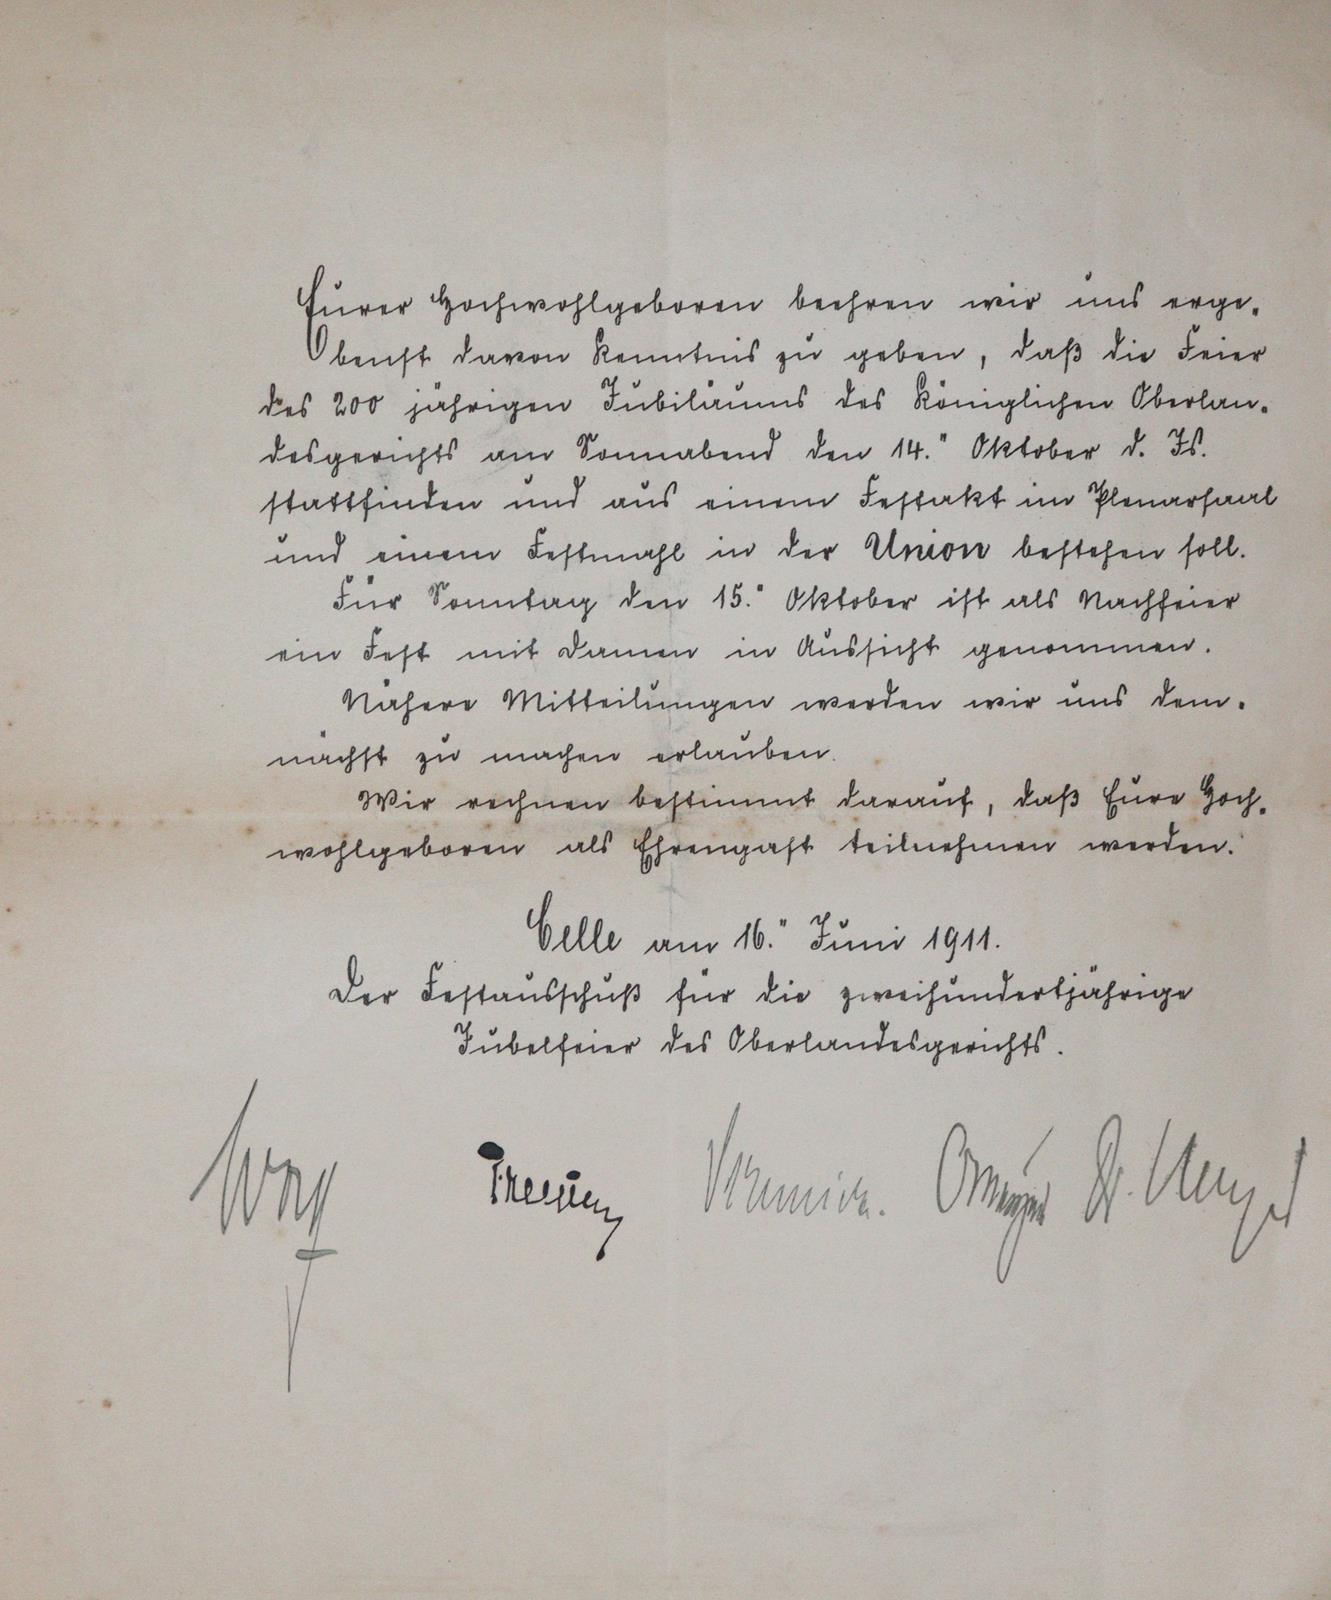 Eurer Hochwohlgeboren beehren wir uns erge-
benst davon Kenntnis zu geben, daß die Feier
des 200 jährigen Jubiläums des Königlichen Oberlan-
desgerichts am Sonnabend den 14." Oktober d. Js.
stattfinden und aus einem Festakt im Plenarsaal
und einem Festmahl in der Union bestehen soll.
Für Sonntag den 15." Oktober ist als Nachfeier
ein Fest mit Damen in Aussicht genommen.
Nähere Mitteilungen werden wir uns dem-
nächst zu machen erlauben.
Wir rechnen bestimmt darauf, daß Eure Hoch-
wohlgeboren als Ehrengast teilnehmen werden.
Celle am 16." Juni 1911.
Der Festausschuß für die zweihundertjährige
Jubelfeier des Oberlandesgerichts.
Dr.